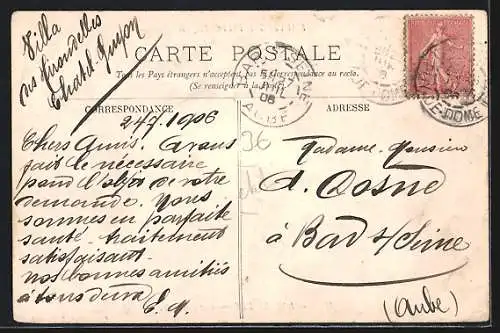 Villa
nos Hirondelles
Chatel Guyon
CARTE POSTALE
Tous les Pays étrangers n'acceptent pas la Correspondance au recto.
(Se renseigner à la Poste)
CORRESPONDANCE
ADRESSE
24 7. 1906
Chers Amis. Avons
fait le nécessaire
pour l'objet de votre
demande. Nous
sommes en parfaite
santé. traitement
satisfaisant.
nos bonnes amitiés
à tous deux
E. M.
96
Madame. Monsieur
A. Cosne
à Bar s/Seine
(Aube)
BAR-S-SEINE
06
AUBE
DE-DOME